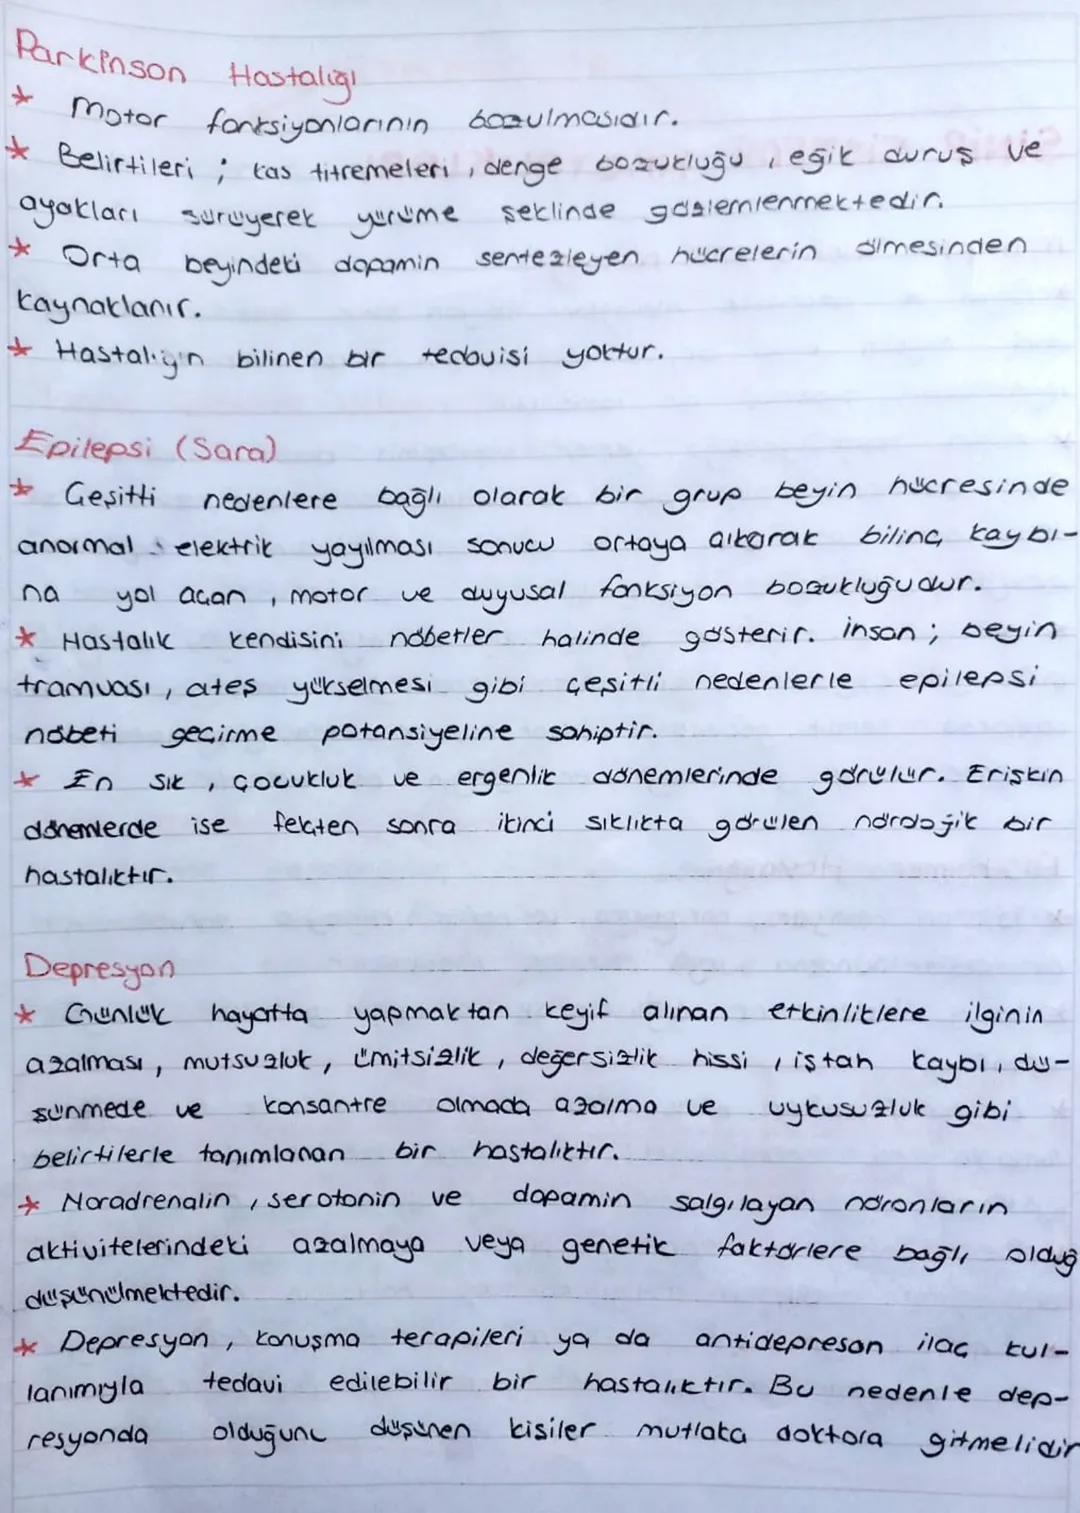 Parkinson Hastalığı
* Motor fonksiyonlarının bozulmasıdır.
* Belirtileri ; kas titremeleri , denge bozukluğu , eğik duruş ve
ayakları sürüyerek yürüme şeklinde gözlemlenmektedir.
* Orta beyindeki dopamin sentezleyen hücrelerin ölmesinden
kaynaklanır.
* Hastalığın bilinen bir tedavisi yoktur.
Epilepsi (Sara)
* Çeşitli nedenlere bağlı olarak bir grup beyin hücresinde
anormal elektrik yayılması sonucu ortaya çıkarak bilinç kaybı-
na yol açan , motor ve duyusal fonksiyon bozukluğudur.
* Hastalık kendisini nöbetler halinde gösterir. İnsan ; beyin
tramvası , ateş yükselmesi gibi çeşitli nedenlerle epilepsi
nöbeti geçirme potansiyeline sahiptir.
* En sık , çocukluk ve ergenlik dönemlerinde görülür. Erişkin
dönemlerde ise felçten sonra ikinci sıklıkta görülen nörolojik bir
hastalıktır.
Depresyon
* Günlük hayatta yapmaktan keyif alınan etkinliklere ilginin
azalması , mutsuzluk , ümitsizlik , değersizlik hissi , iştah kaybı , dü-
şünmede ve konsantre olmada azalma ve uykusuzluk gibi
belirtilerle tanımlanan bir hastalıktır.
* Noradrenalin , serotonin ve dopamin salgılayan nöronların
aktivitelerindeki azalmaya veya genetik faktörlere bağlı olduğ
düşünülmektedir.
* Depresyon , konuşma terapileri ya da antidepresan ilaç kul-
lanımıyla tedavi edilebilir bir hastalıktır. Bu nedenle dep-
resyonda olduğunu düşünen kişiler mutlaka doktora gitmelidir